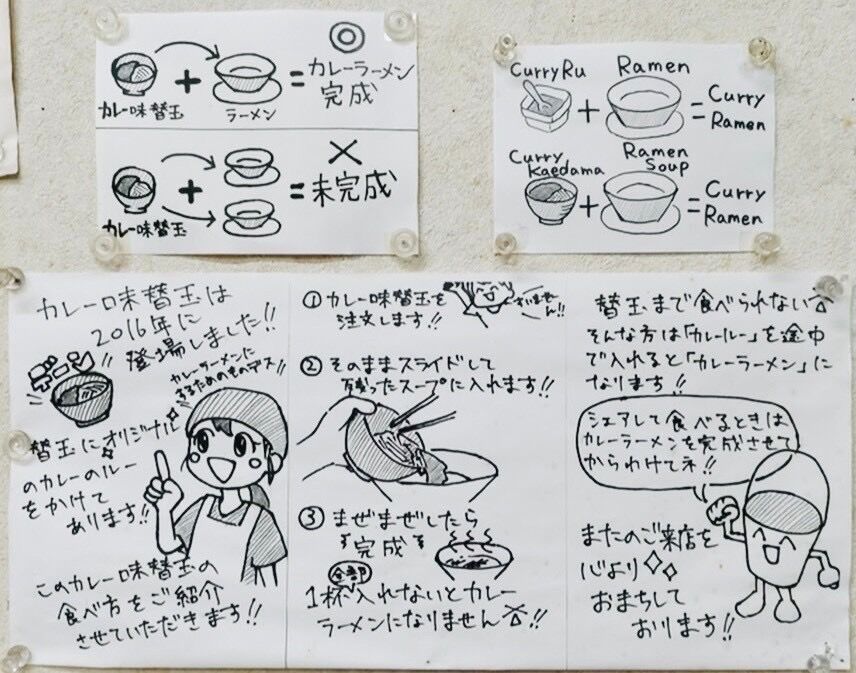 カレー味替玉 + ラーメン = ◎カレーラーメン
完成
カレー味替玉 + = ×未完成
Curry Ru + Ramen = Curry
Ramen
Curry
Kaedama + Ramen
Soup = Curry
Ramen
カレー味替玉は
2016年に
登場しました!!
カレーラーメンに
するためのものデス!!
替玉にオリジナル
のカレーのルー
をかけて
あります!!
このカレー味替玉の
食べ方をご紹介
させていただきます!!
① カレー味替玉を
注文します!!
すいませーん!!
② そのままスライドして
残ったスープに入れます!!
③ まぜまぜしたら
"完成"
全部
1杯入れないとカレー
ラーメンになりません!!
替玉まで食べられない
そんな方は「カレールー」を途中
で入れると「カレーラーメン」に
なります!!
シェアして食べるときは
カレーラーメンを完成させて
からわけてネ!!
またのご来店を
心より
おまちして
おります!!